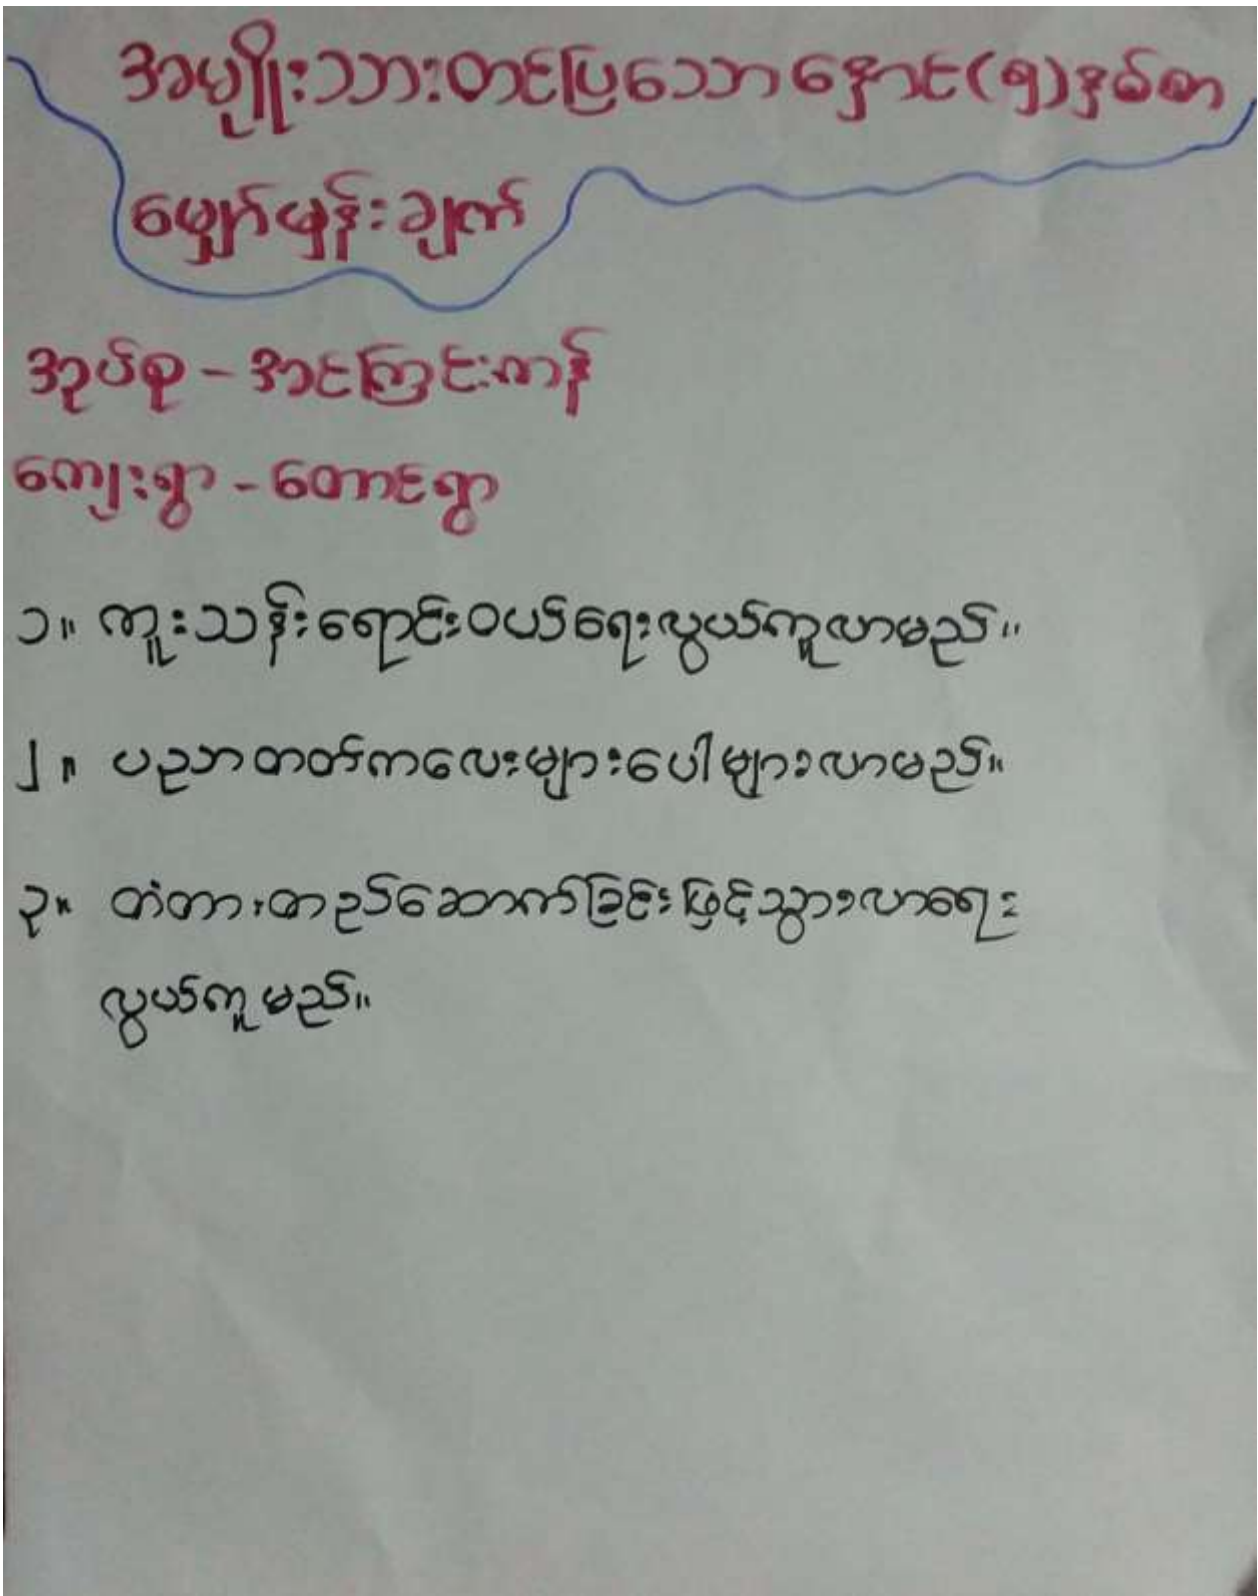 အမျိုးသားတင်ပြသောနှောင်(၅)နှစ်စာ
မျှော်မှန်းချက်
အုပ်စု - အင်ကြင်းကန်
ကျေးရွာ - တောင်ရွာ
၁။ ကူးသန်းရောင်းဝယ်ရေးလွယ်ကူလာမည်။
၂။ ပညာတတ်ကလေးများပေါ်များလာမည်။
၃။ တံတားတည်ဆောက်ခြင်းဖြင့်သွားလာရေး
လွယ်ကူမည်။